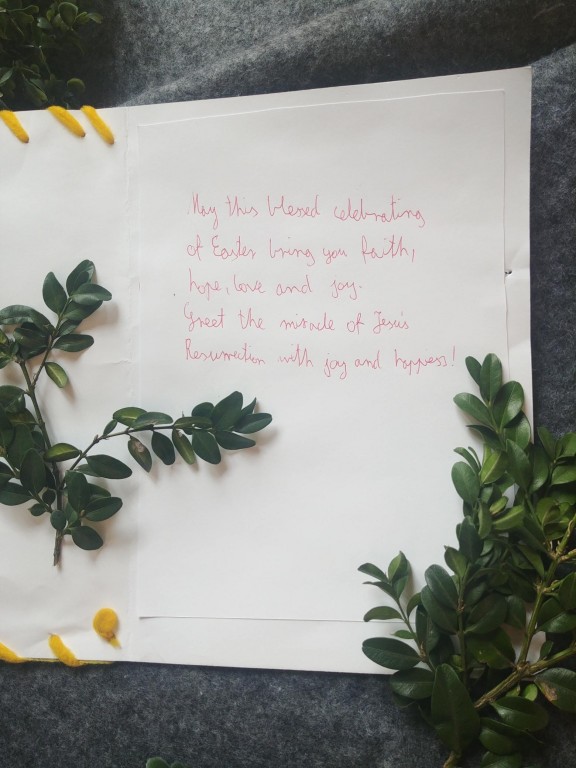 May this blessed celebrating
of Easter bring you faith,
hope, love and joy.
Greet the miracle of Jesus
Resurrection with joy and happess!